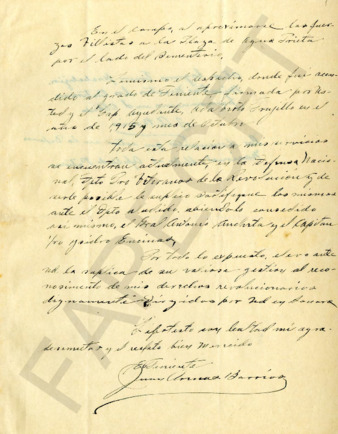 En el campo, al aproximarse las fuer-
zas Villistas a la Plaza de Agua Prieta
por el lado del Cementerio.
el despacho, donde fui ascen-
dido al grado de Teniente firmado por Us-
ted y el Cap. Ayudante, Trujillo en el
año de 1915 y mes de Octubre.
Toda esta relacion a mis servicios
se encuentran actualmente, en la Defensa Nacio-
nal, Dpto. los Veteranos de la Revolucion y de
serle posible le suplico ratifique los mismos
ante el Dpto. aludido,
asi mismo, el Gral. Antonio y el Capitan
1/o Ysidro Encinas.
Por todo lo expuesto, elevo ante
Ud. la suplica de su valiosa gestion al reco-
nosimiento de mis derechos revolucionarios
dignamente dirigidos por Ud. en Sonora.
Le protesto con lealtad mi agra-
desimiento y el respeto bien merecido
El Teniente.
Juan Barrios
FAPECFT